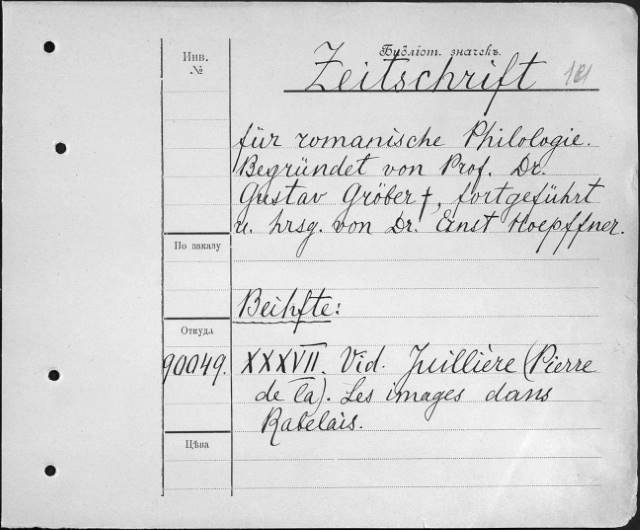 Библіот. значекъ.
Инв.
№
Zeitschrift 101
für romanische Philologie.
Begründet von Prof. Dr.
Gustav Gröber †, fortgeführt
u. hrsg. von Dr. Ernst Hoepffner.
По заказу
Beihfte:
Откуда
90049. XXXVII. Vid. Juillière (Pierre
de la). Les images dans
Rabelais.
Цѣна